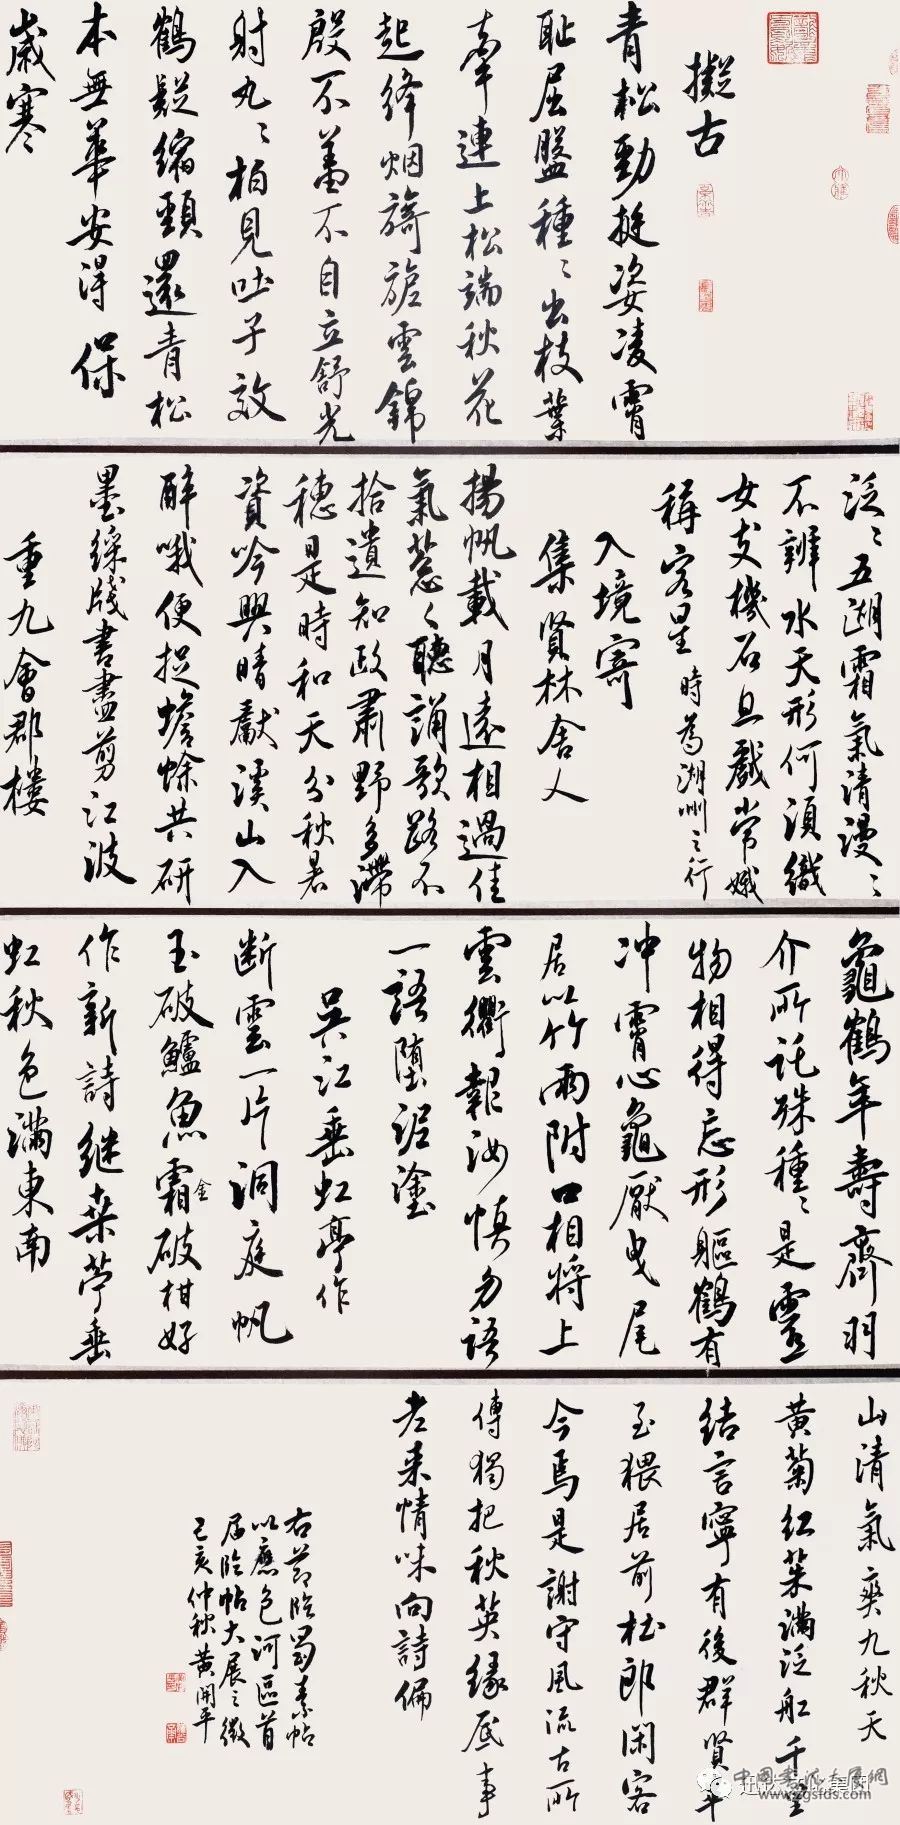 擬古
青松勁挺姿凌霄
恥屈盤種〻出枝葉
牽連上松端秋花
起絳烟旖旎雲錦
殷不羞不自立舒光
射丸〻柏見吐子效
鶴疑縮頸還青松
本無華安得保
歲寒
泛〻五湖霜氣清漫〻
不辨水天形何須織
女支機石且戲常娥
稱客星 時為湖州之行
入境寄
集賢林舍人
揚帆載月遠相過佳
氣蔥〻聽誦歌路不
拾遺知政肅野多滯
穗是時和天分秋暑
資吟興晴獻溪山入
醉哦便捉蟾蜍共研
墨綵牋書盡剪江波
重九會郡樓
龜鶴年壽齊羽
介所託殊種〻是靈
物相得忘形軀鶴有
冲霄心龜厭曳尾
居以竹兩附口相將上
雲衢報汝慎勿語
一語墮泥塗
吳江垂虹亭作
断雲一片洞庭帆
玉破鱸魚霜金破柑好
作新詩継桑苧垂
虹秋色滿東南
山清氣爽九秋天
黃菊紅茱滿泛舡千里
結言寧有後群賢畢
至猥居前杜郎閑客
今焉是謝守風流古所
傳獨把秋英緣底事
老来情味向詩偏
右节临蜀素帖
以應包河區首
届临帖大展之徵
己亥仲秋黄開平
中国书法大展网
www.zgsfds.com